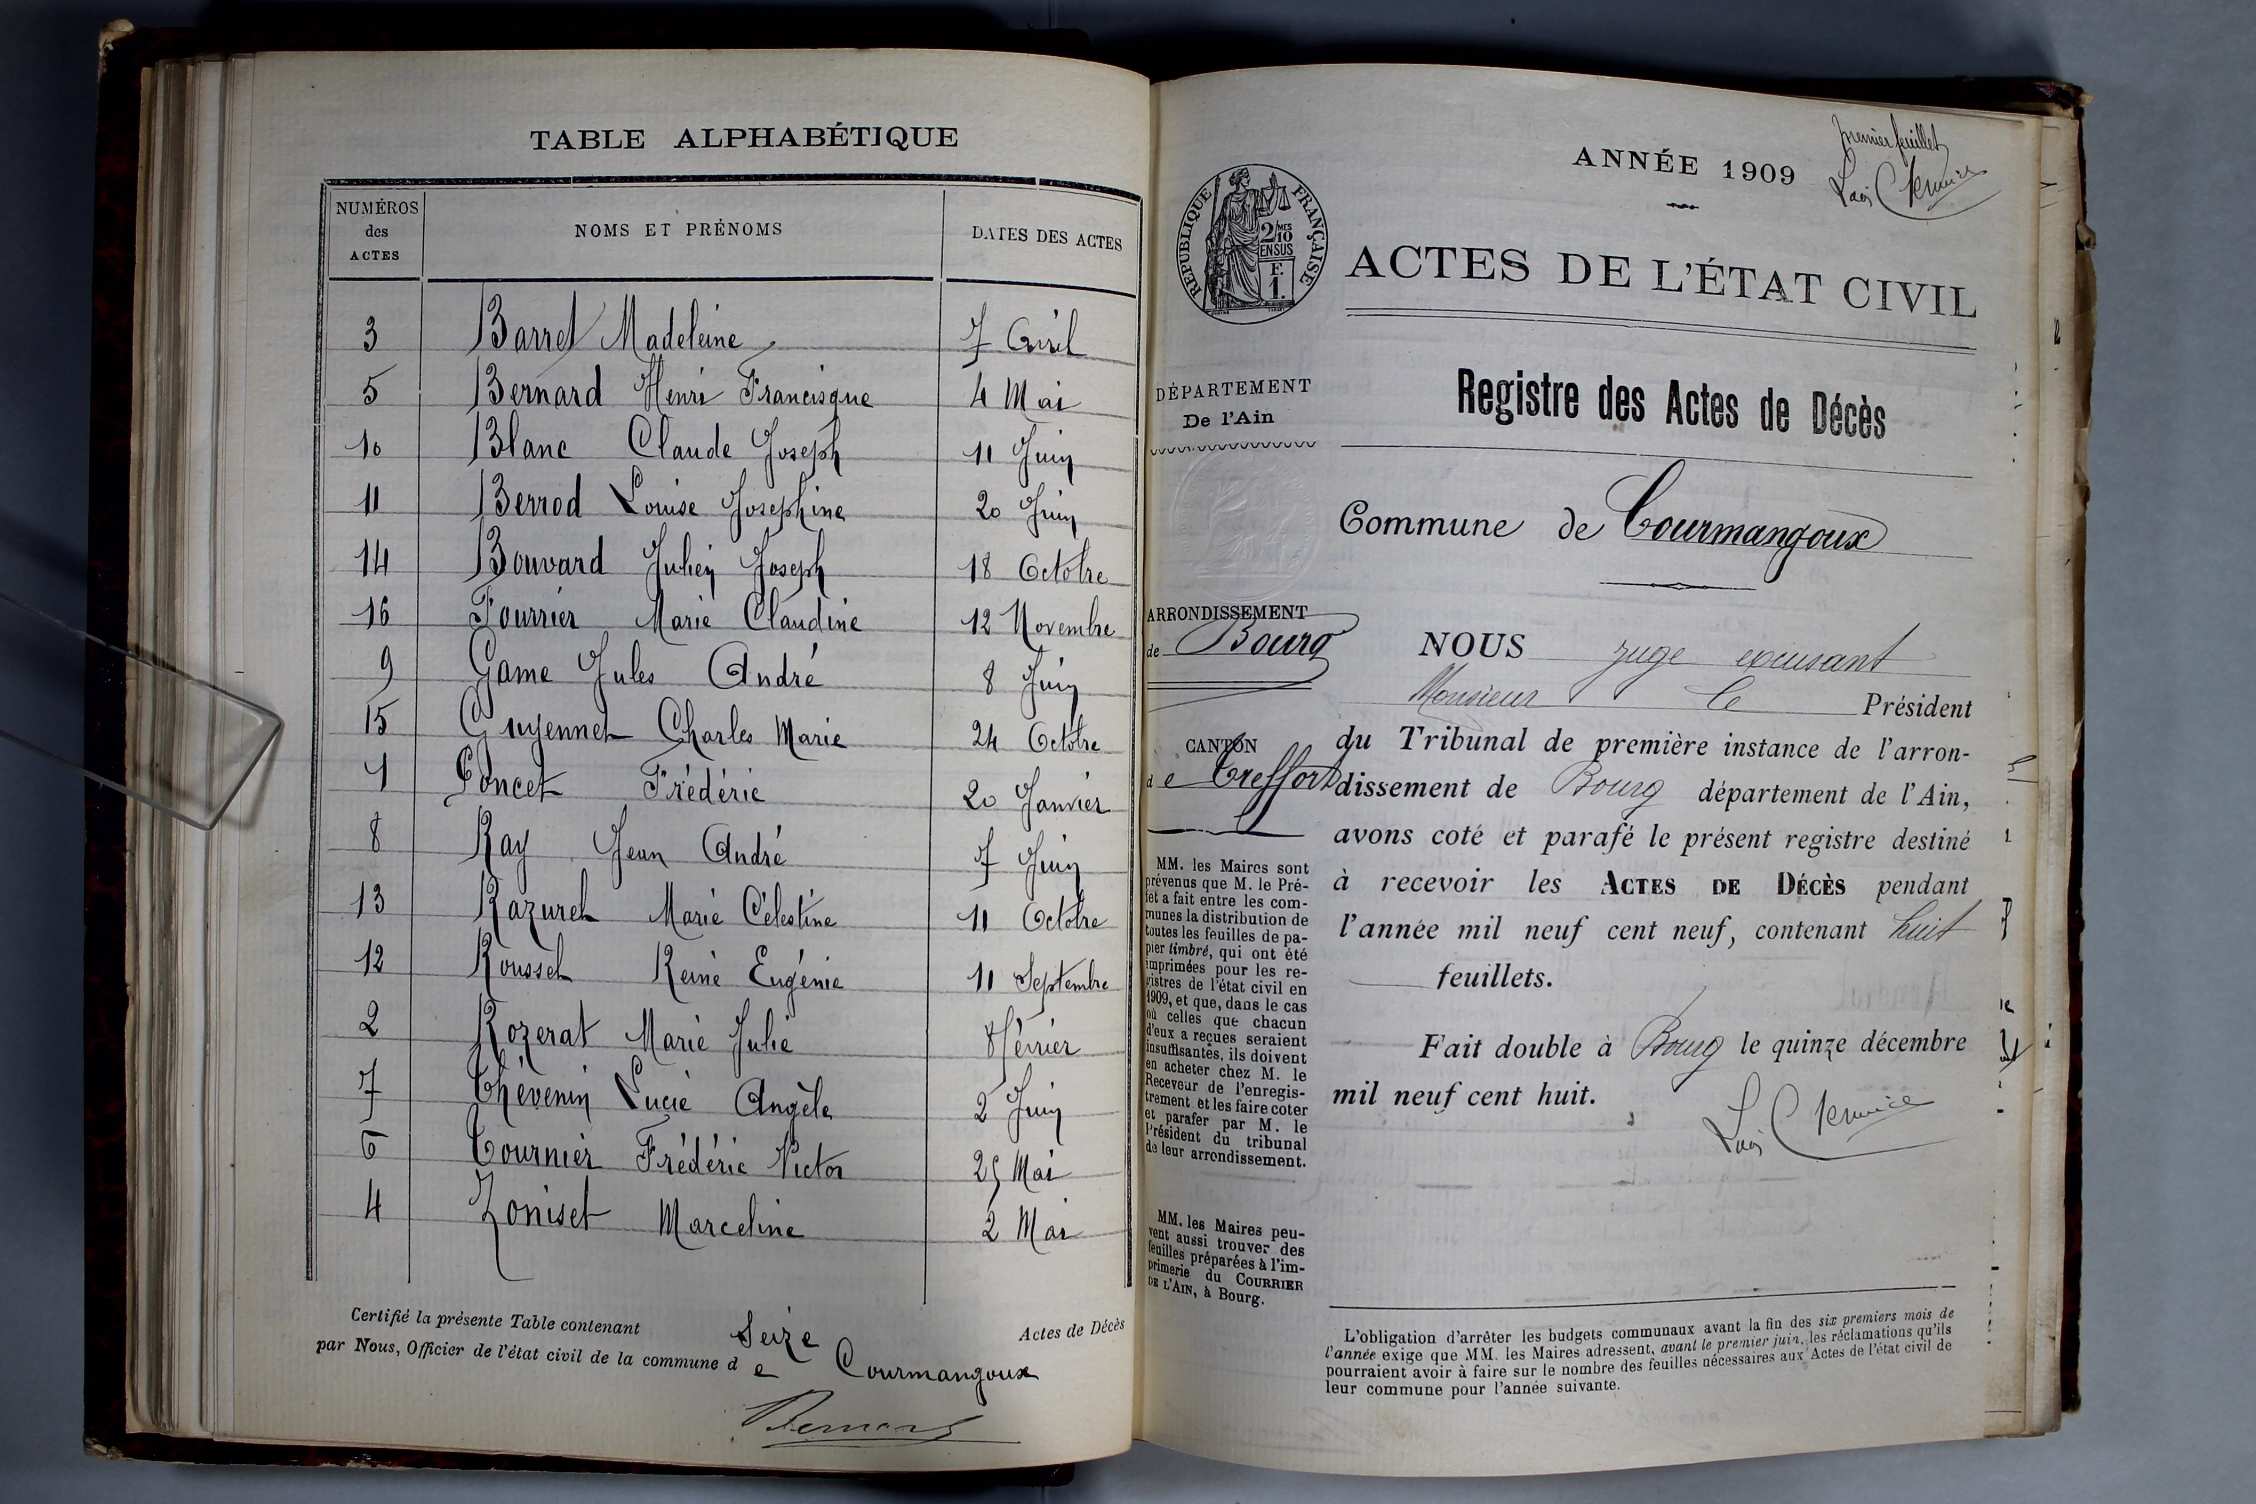 TABLE ALPHABÉTIQUE
NUMÉROS des ACTES NOMS ET PRÉNOMS DATES DES ACTES
3 Barret Madeleine 7 Avril
5 Bernard Henri Francisque 4 Mai
10 Blanc Claude Joseph 11 Juin
11 Berrod Louise Josephine 20 Juin
14 Bouvard Julien Joseph 18 Octobre
16 Fourrier Marie Claudine 12 Novembre
9 Game Jules André 8 Juin
15 Guyennet Charles Marie 24 Octobre
1 Poncet Frédéric 20 Janvier
8 Ray Jean André 7 Juin
13 Razurel Marie Célestine 11 Octobre
12 Roussel Reine Eugénie 11 Septembre
2 Rozerat Marie Julie 8 Février
7 Thévenin Lucie Angèle 2 Juin
6 Tournier Frédéric Victor 25 Mai
4 Zoniset Marceline 2 Mai
Certifié la présente Table contenant Seize Actes de Décès
par Nous, Officier de l'état civil de la commune de Courmangoux
Bernard
premier feuillet
ANNÉE 1909
RÉPUBLIQUE FRANÇAISE
2/10 MES
EN SUS
F.
1.
ACTES DE L'ÉTAT CIVIL
DÉPARTEMENT
De l'Ain
Registre des Actes de Décès
Commune de Courmangoux
ARRONDISSEMENT
de Bourg
CANTON
de Treffort
MM. les Maires sont
prévenus que M. le Pré-
fet a fait entre les com-
munes la distribution de
toutes les feuilles de pa-
pier timbré, qui ont été
imprimées pour les re-
gistres de l'état civil en
1909, et que, dans le cas
où celles que chacun
d'eux a reçues seraient
insuffisantes, ils doivent
en acheter chez M. le
Receveur de l'enregis-
trement et les faire coter
et parafer par M. le
Président du tribunal
de leur arrondissement.
MM. les Maires peu-
vent aussi trouver des
feuilles préparées à l'im-
primerie du COURRIER
DE L'AIN, à Bourg.
NOUS juge excusant
Monsieur le Président
du Tribunal de première instance de l'arron-
dissement de Bourg département de l'Ain,
avons coté et parafé le présent registre destiné
à recevoir les ACTES DE DÉCÈS pendant
l'année mil neuf cent neuf, contenant huit
feuillets.
Fait double à Bourg le quinze décembre
mil neuf cent huit.
L'obligation d'arrêter les budgets communaux avant la fin des six premiers mois de
l'année exige que MM. les Maires adressent, avant le premier juin, les réclamations qu'ils
pourraient avoir à faire sur le nombre des feuilles nécessaires aux Actes de l'état civil de
leur commune pour l'année suivante.